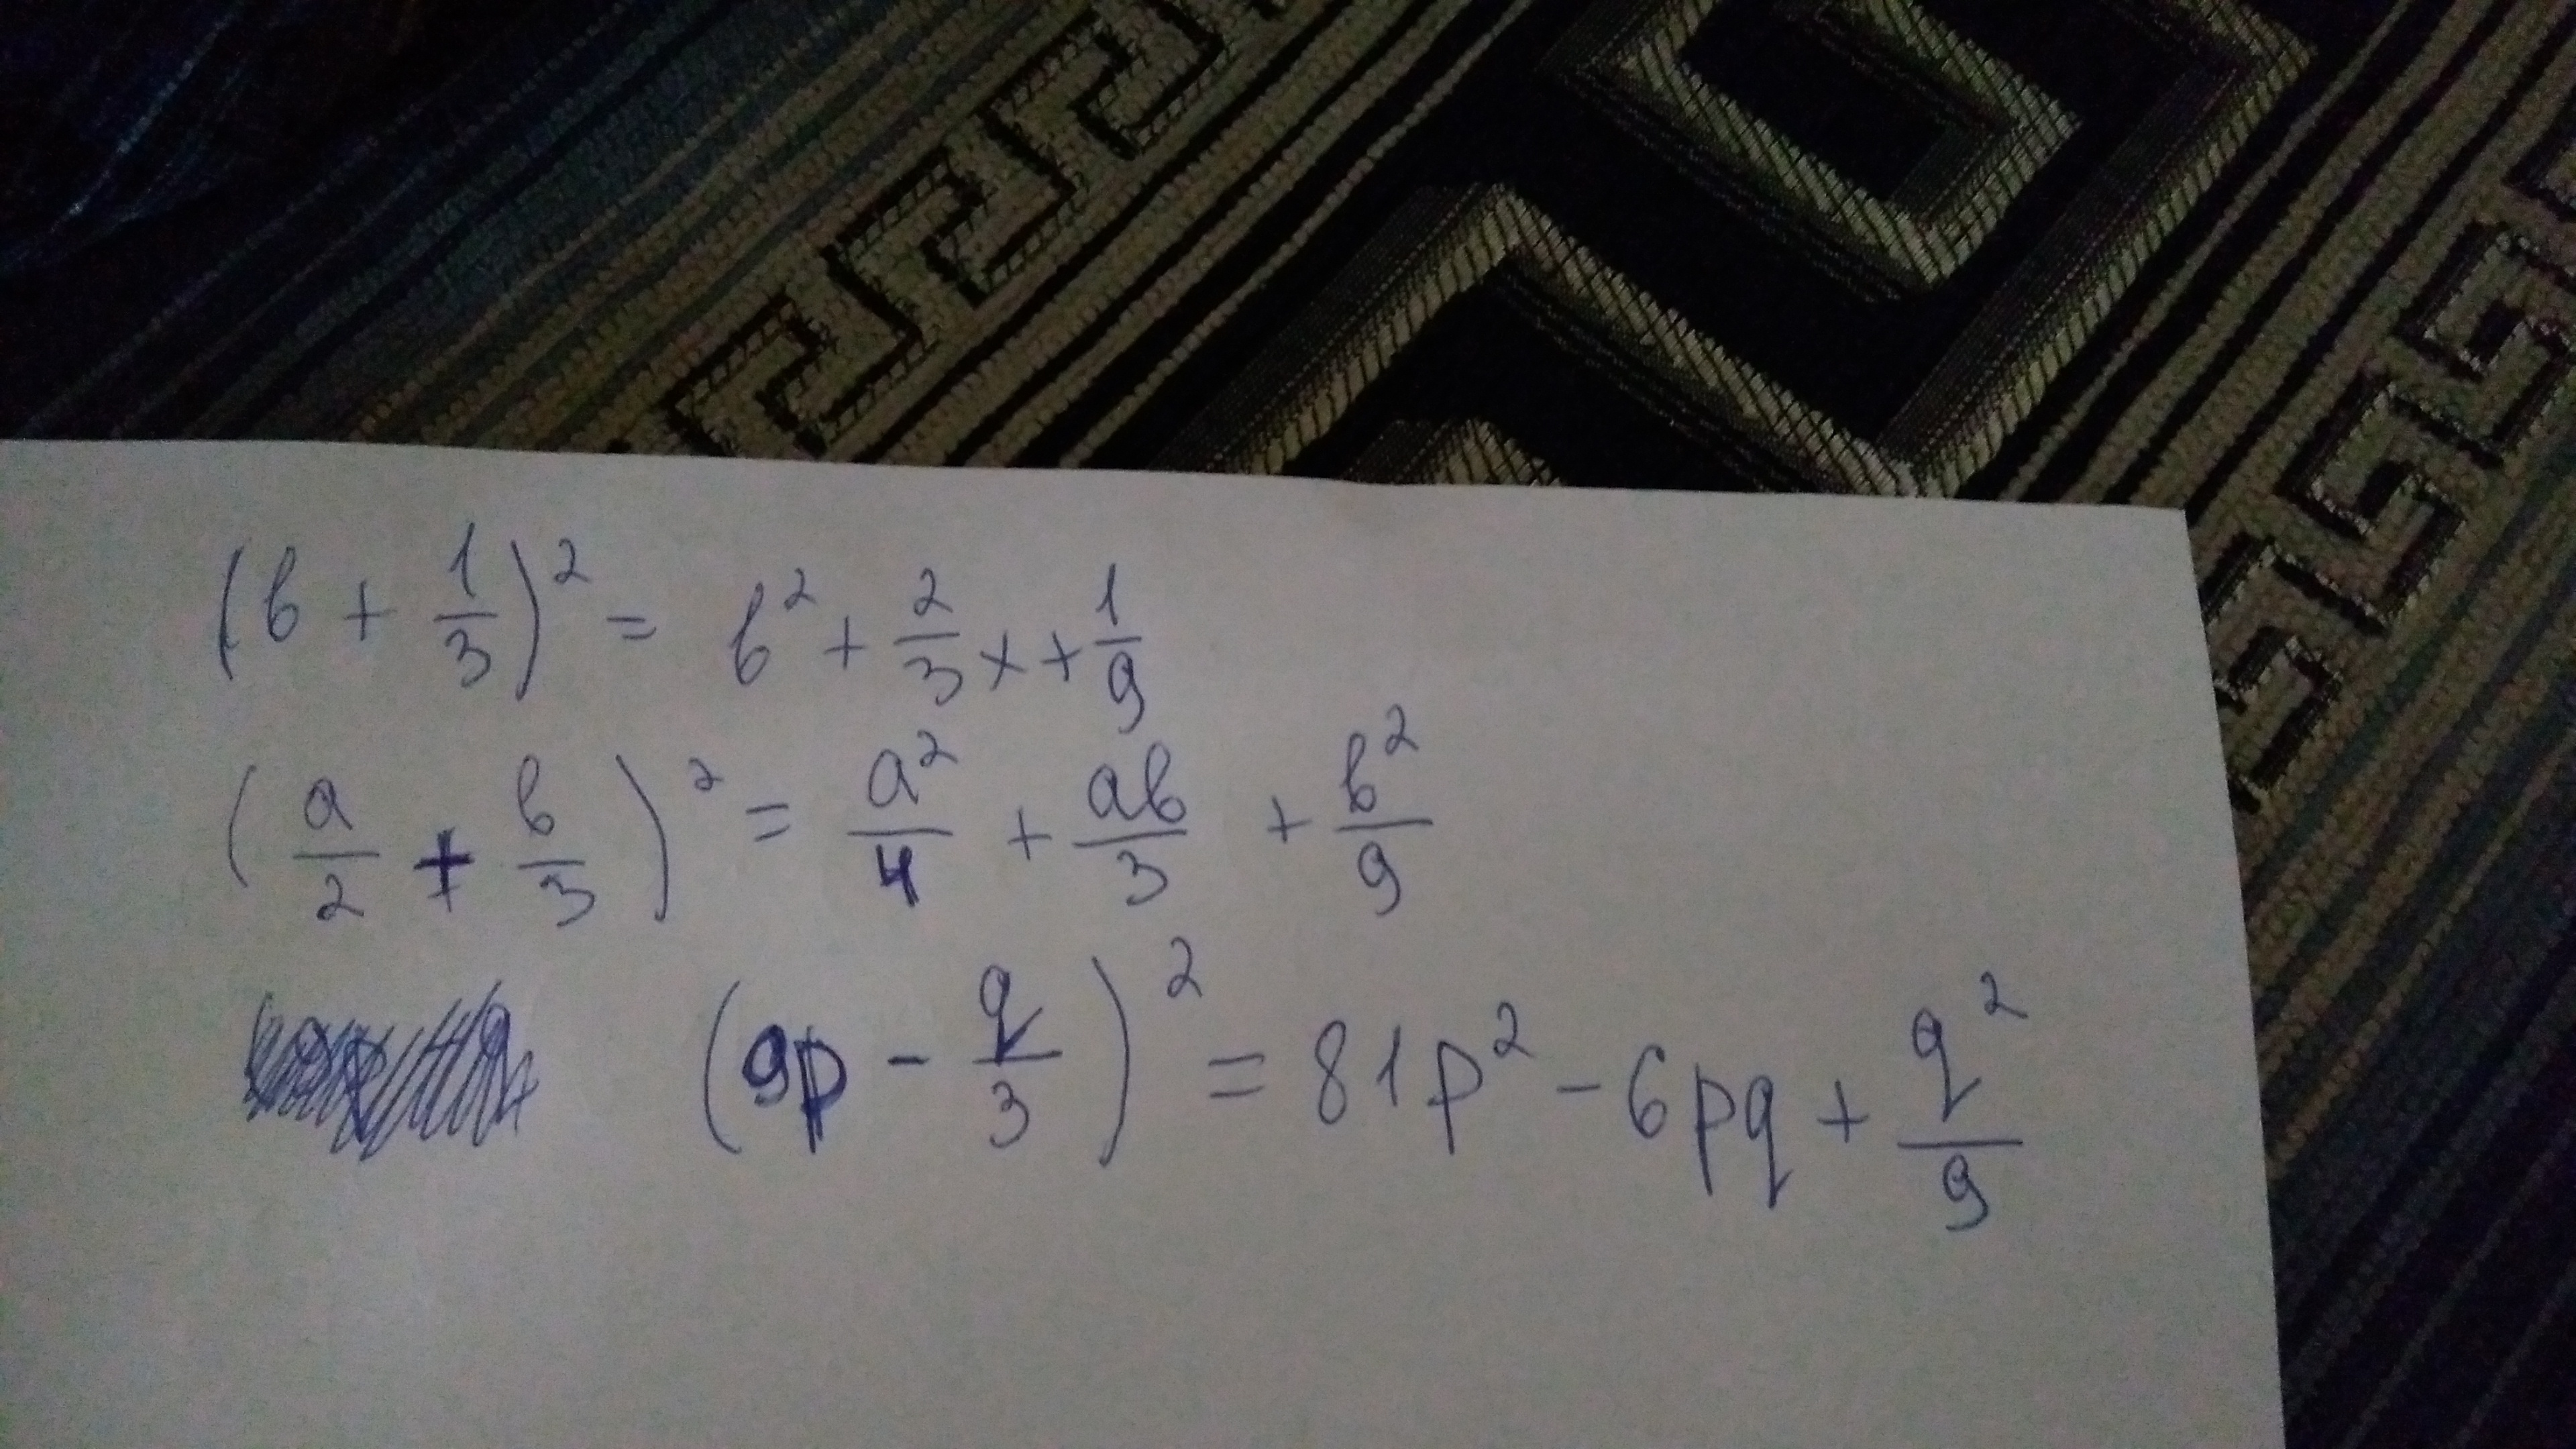 (b + 1/3)² = b² + 2/3 x + 1/9
(a/2 + b/3)² = a²/4 + ab/3 + b²/9
(9p - q/3)² = 81p² - 6pq + q²/9